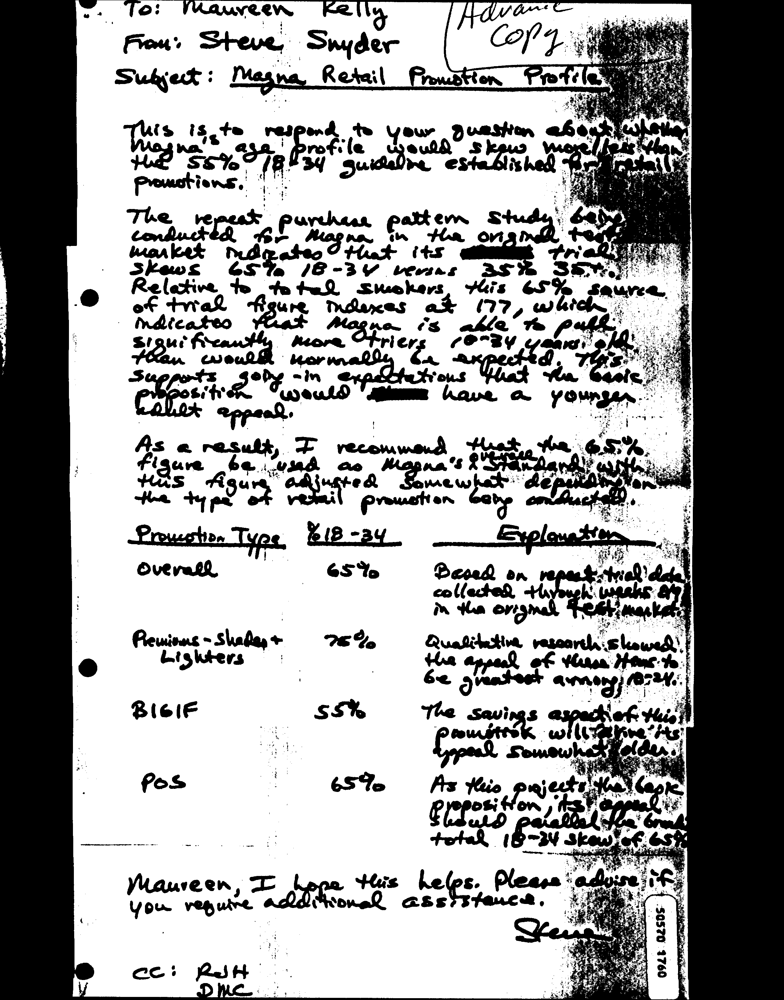 To: Maureen Kelly
Advance
Copy
From: Steve Snyder
Subject: Magna Retail Promotion Profile
This is to respond to your question about whether
Magna's age profile would skew more/less than
the 55% 18-34 guideline established for retail
promotions.
The repeat purchase pattern study being
conducted for Magna in the original test
market indicates that its trial
skews 65% 18-34 versus 35% 35+.
Relative to total smokers, this 65% source
of trial figure indexes at 177, which
indicates that Magna is able to pull
significantly more triers 18-34 years old
than would normally be expected. This
supports going-in expectations that the basic
proposition would have a younger
adult appeal.
As a result, I recommend that the 65%
figure be used as Magna's overall standard with
this figure adjusted somewhat depending on
the type of retail promotion being conducted.
Promotion Type % 18-34 Explanation
Overall 65% Based on repeat-trial data
collected through weeks
in the original test market.
Premiums-Shades + 75% Qualitative research showed
Lighters the appeal of these items to
be greatest among 18-24.
B1G1F 55% The savings aspect of this
promotion will its
appeal somewhat older.
POS 65% As this projects the basic
proposition, its appeal
should parallel the
total 18-34 skew of 65%
Maureen, I hope this helps. Please advise if
you require additional assistance.
Steve
cc: RJH
DMC
50570 1760